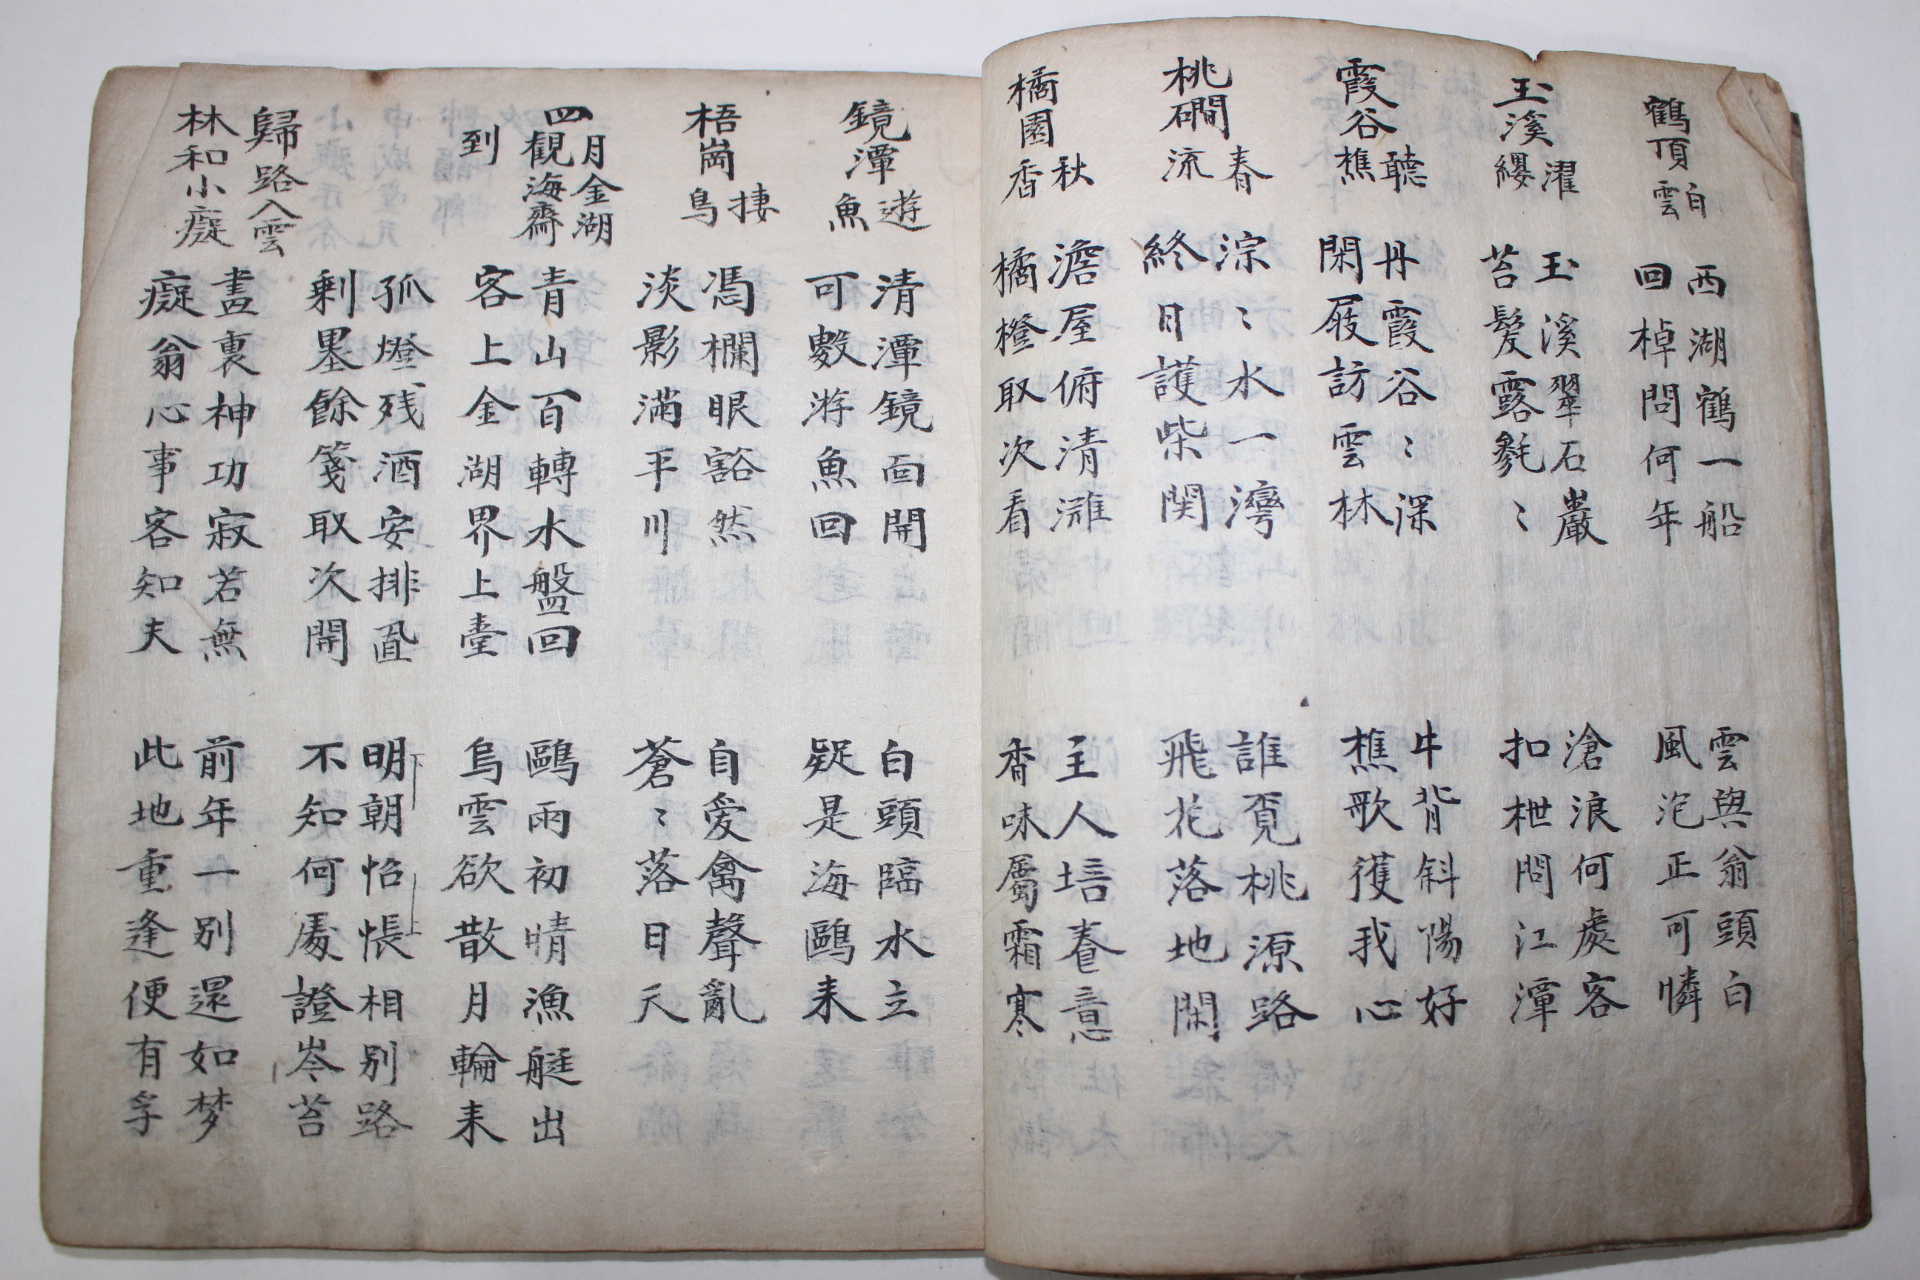 鶴頂白雲
西湖鶴一船
回棹問何年
雲與翁頭白
風泡正可憐
玉溪濯纓
玉溪翠石巖
苔髮露毿〻
滄浪何處客
扣枻問江潭
霞谷聽樵
丹霞谷〻深
閑屐訪雲林
牛背斜陽好
樵歌獲我心
桃磵春流
淙〻水一灣
終日護柴関
誰覔桃源路
飛花落地閑
橘園秋香
澹屋俯清灘
橘橙取次看
主人培養意
香味屬霜寒
鏡潭遊魚
清潭鏡面開
可數游魚回
白頭臨水立
疑是海鷗来
梧崗捿鳥
馮欄眼豁然
淡影滿平川
自愛禽聲亂
蒼〻落日天
四月金湖
觀海齋
到
青山百轉水盤回
客上金湖界上臺
鷗雨初晴漁艇出
烏雲欲散月輪来
孤燈残酒安排
剩墨餘箋取次開
明朝怊悵相别路
不知何處證岑苔
歸路入雲
林和小癡
畫裏神功寂若無
癡翁心事客知夫
前年一别還如梦
此地重逢便有孚